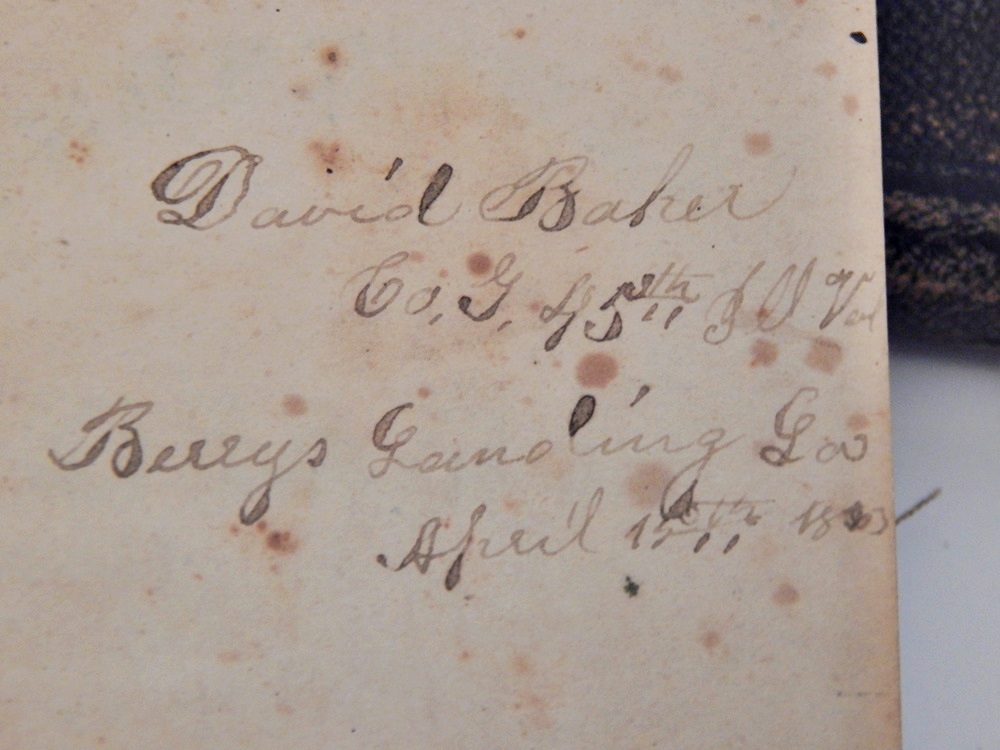 David Baker
Co, G, 45th Ill Vol
Berrys Landing La
April 15th 1863